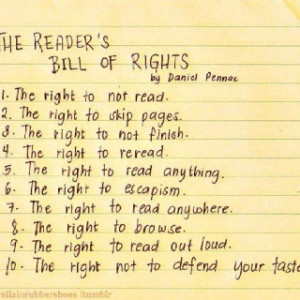 THE READER'S
BILL OF RIGHTS
by Daniel Pennac
1. The right to not read.
2. The right to skip pages.
3. The right to not finish.
4. The right to reread.
5. The right to read anything.
6. The right to escapism.
7. The right to read anywhere.
8. The right to browse.
9. The right to read out loud.
10. The right not to defend your taste